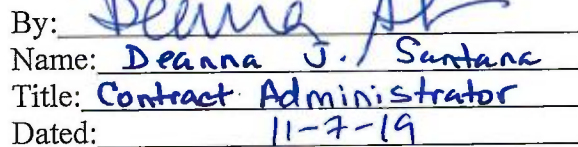 By: Deanna
Name: Deanna J. Santana
Title: Contract Administrator
Dated: 11-7-19